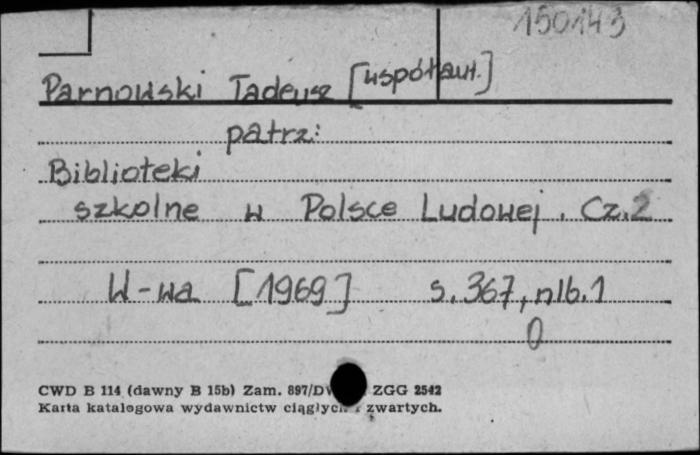 150143
Parnowski Tadeusz [współaut.]
patrz:
Biblioteki
szkolne w Polsce Ludowej. Cz.2
W-wa [1969] s.367, nlb.1
0
CWD B 114 (dawny B 15b) Zam. 897/D ZGG 2542
Karta katalogowa wydawnictw ciągłych i zwartych.